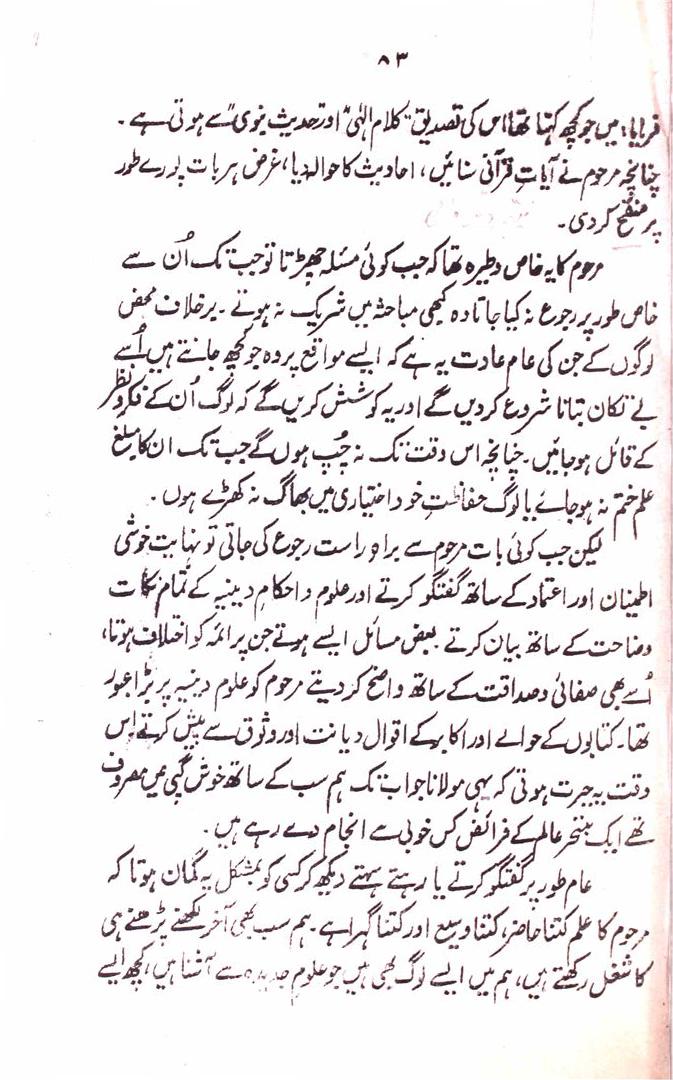 ۸۳
فرمایا: میں جو کچھ کہتا تھا اس کی تصدیق "کلام الٰہی" اور "حدیث نبوی" سے ہوتی ہے۔
چنانچہ مرحوم نے آیاتِ قرآنی سنائیں، احادیث کا حوالہ دیا، غرض ہر بات پورے طور
پر منقح کر دی۔
مرحوم کا یہ خاص وطیرہ تھا کہ جب کوئی مسئلہ چھڑتا تو جب تک اُن سے
خاص طور پر رجوع نہ کیا جاتا وہ کبھی مباحثہ میں شریک نہ ہوتے۔ برخلاف محض
لوگوں کے جن کی عام عادت یہ ہے کہ ایسے مواقع پر وہ جو کچھ جانتے ہیں اُسے
بے تکان بتانا شروع کر دیں گے اور یہ کوشش کریں گے کہ لوگ اُن کے فکر و نظر
کے قائل ہو جائیں۔ چنانچہ اس وقت تک نہ چُپ ہوں گے جب تک ان کا مبلغ
علم ختم نہ ہو جائے یا لوگ حفاظتِ خود اختیاری میں بھاگ نہ کھڑے ہوں۔
لیکن جب کوئی بات مرحوم سے براہ راست رجوع کی جاتی تو نہایت خوشی
اطمینان اور اعتماد کے ساتھ گفتگو کرتے اور علوم و احکامِ دینیہ کے تمام نکات
وضاحت کے ساتھ بیان کرتے بعض مسائل ایسے ہوتے جن پر ائمہ کو اختلاف ہوتا،
اُسے بھی صفائی و صداقت کے ساتھ واضح کر دیتے مرحوم کو علوم دینیہ پر بڑا عبور
تھا۔ کتابوں کے حوالے اور اکابر کے اقوال دیانت اور وثوق سے پیش کرتے اس
وقت یہ حیرت ہوتی کہ یہی مولانا جو اب تک ہم سب کے ساتھ خوش گپی میں مصروف
تھے ایک متبحر عالم کے فرائض کس خوبی سے انجام دے رہے ہیں۔
عام طور پر گفتگو کرتے یا رہتے سہتے دیکھ کر کسی کو بمشکل یہ گمان ہوتا کہ
مرحوم کا علم کتنا حاضر، کتنا وسیع اور کتنا گہرا ہے۔ ہم سب بھی آخر لکھنے پڑھنے ہی
کا شغل رکھتے ہیں، ہم میں ایسے لوگ بھی ہیں جو علوم جدیدہ سے آشنا ہیں، کچھ ایسے